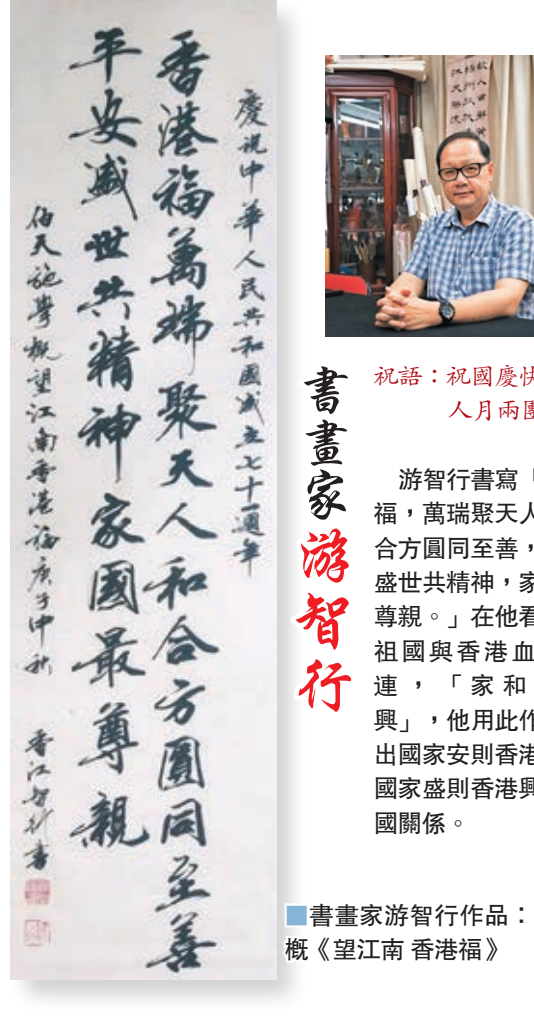 慶祝中華人民共和國成立七十一週年
香港福萬瑞聚天人和合方圓同至善
平安盛世共精神家國最尊親
伯天施學概望江南香港福庚子中秋 香江智行書
書畫家游智行
祝語：祝國慶快
人月兩團
游智行書寫「
福，萬瑞聚天人
合方圓同至善，
盛世共精神，家
尊親。」在他看
祖國與香港血
連，「家和
興」，他用此作
出國家安則香港
國家盛則香港興
國關係。
■書畫家游智行作品：
概《望江南 香港福》